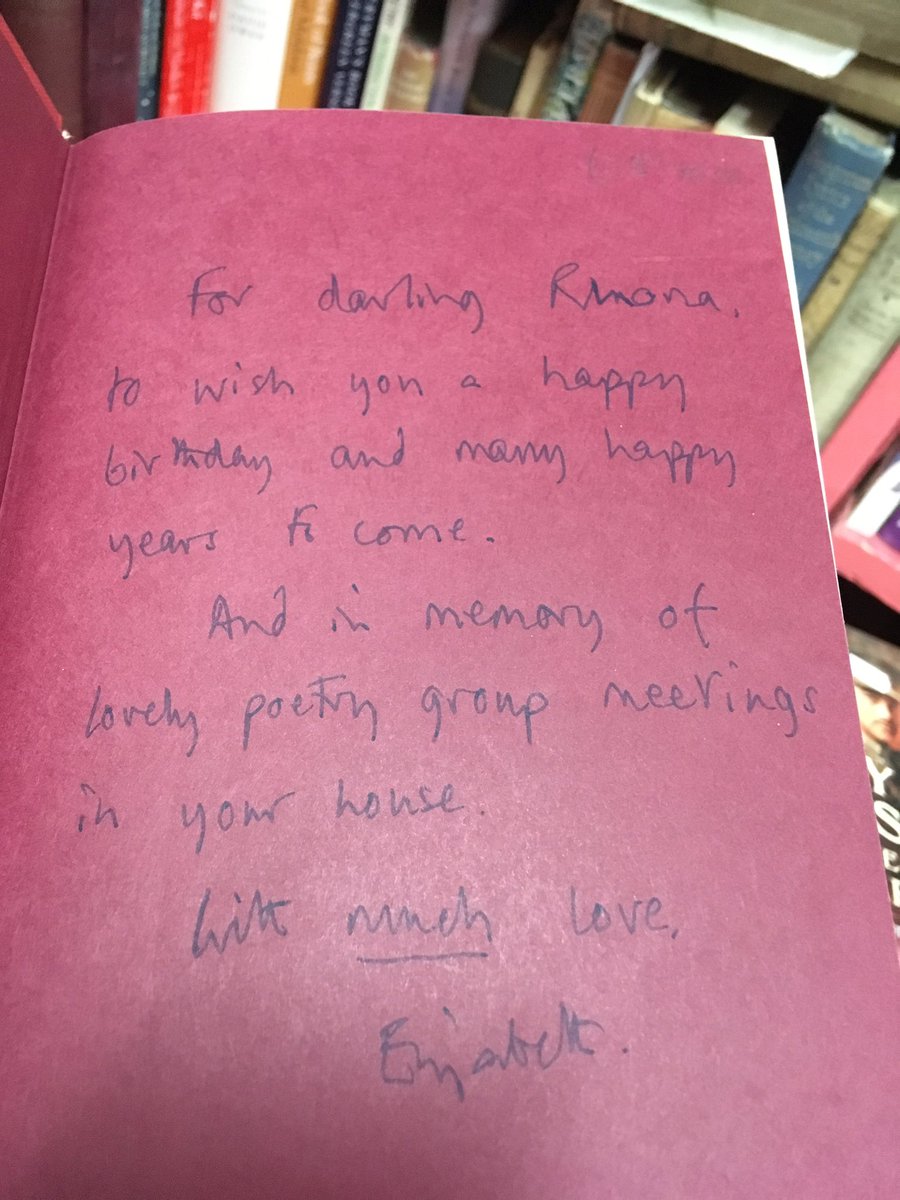 For darling Rmona,
to wish you a happy
birthday and many happy
years to come.
And in memory of
lovely poetry group meetings
in your house.
With much love,
Elizabeth.